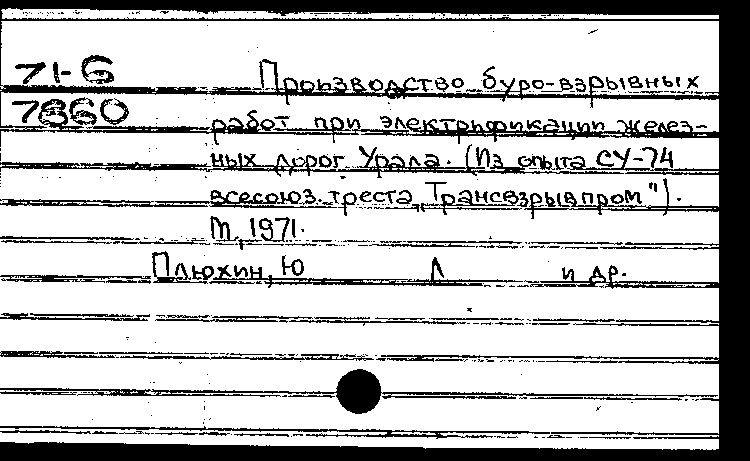 71-6
7860
Производство буро-взрывных
работ при электрификации желез-
ных дорог Урала. (Из опыта СУ-74
всесоюз. треста „Трансвзрывпром").
М., 1971.
Плюхин, Ю Л и др.